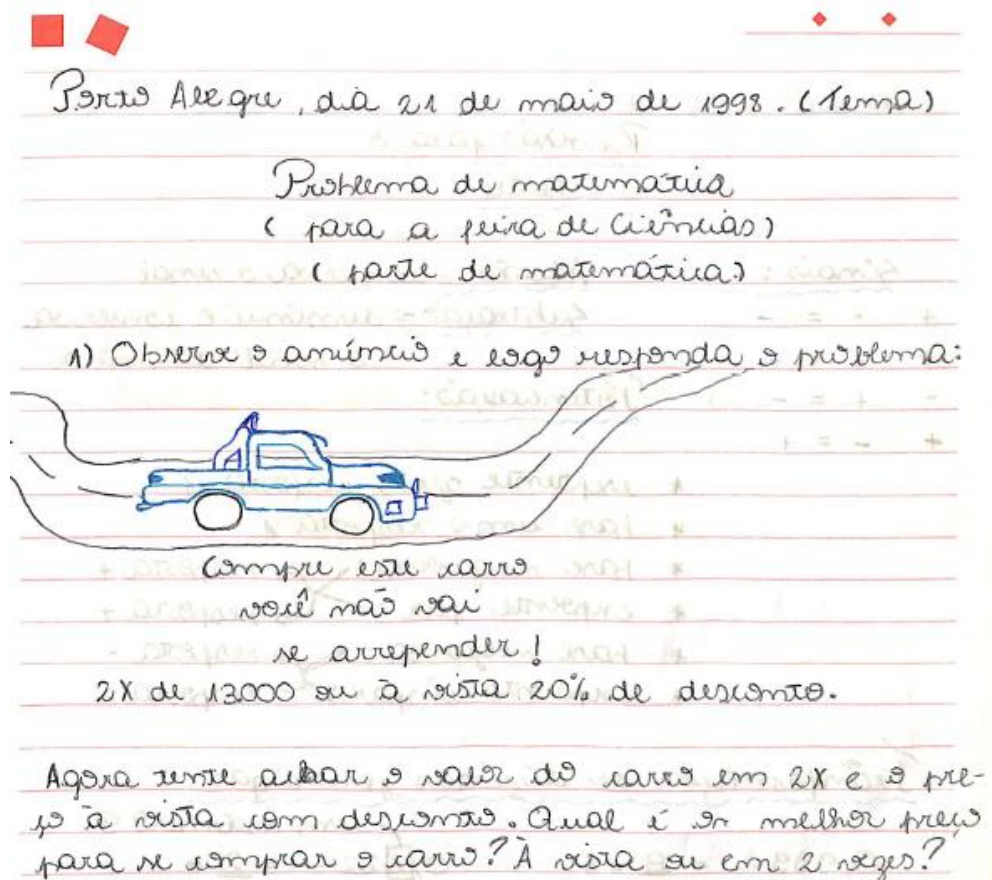 Porto Alegre, dia 21 de maio de 1998. (Tema)
Problema de matemática
(para a feira de Ciências)
(parte de matemática)
1) Observe o anúncio e logo responda o problema:
Compre este carro
você não vai
se arrepender!
2X de 13000 ou à vista 20% de desconto.
Agora tente achar o valor do carro em 2X e o pre-
ço à vista com desconto. Qual é o melhor preço
para se comprar o carro? À vista ou em 2 vezes?